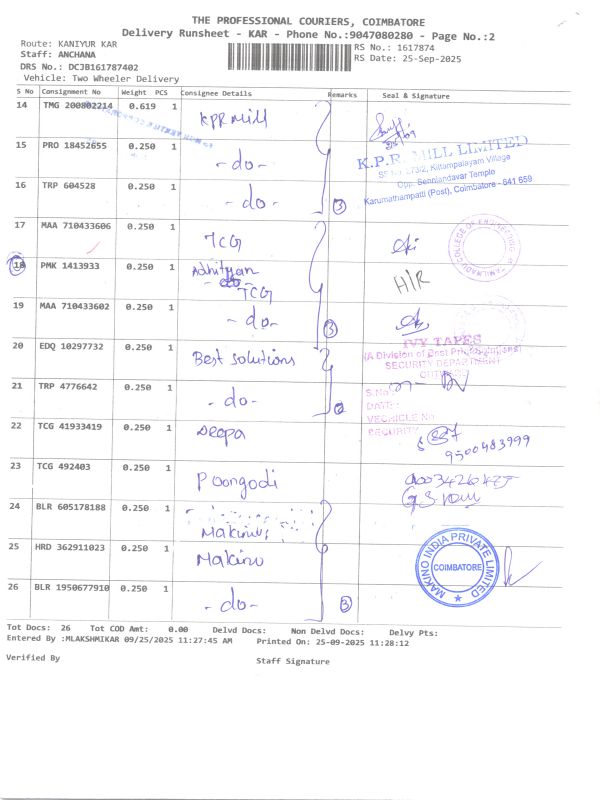 THE PROFESSIONAL COURIERS, COIMBATORE
Delivery Runsheet - KAR - Phone No.:9047080280 - Page No.:2
Route: KANIYUR KAR
Staff: ANCHANA
RS No.: 1617874
RS Date: 25-Sep-2025
DRS No.: DCJB161787402
Vehicle: Two Wheeler Delivery
S No Consignment No Weight PCS Consignee Details Remarks Seal & Signature
14 TMG 200802214 0.619 1 KPR Mill
15 PRO 18452655 0.250 1 - do -
K.P.R. MILL LIMITED
SF No. 273/2, Kittampalayam Village
Opp. Senniandavar Temple
Karumathampatti (Post), Coimbatore - 641 659
16 TRP 604528 0.250 1 - do - 3
17 MAA 710433606 0.250 1 TCG
COLLEGE OF ENGINEERING
18 PMK 1413933 0.250 1 Adhityan
TCG H/R
19 MAA 710433602 0.250 1 - do - 3
20 EDQ 10297732 0.250 1 Best Solutions
IVY TAPES
(A Division of Best
SECURITY DEPARTMENT
21 TRP 4776642 0.250 1 - do - 2
S.No
DATE:
VECHICLE No
SECURITY
22 TCG 41933419 0.250 1 Deepa
9500483999
23 TCG 492403 0.250 1 Poongodi
24 BLR 605178188 0.250 1
25 HRD 362911023 0.250 1 Makino
MAKINO INDIA PRIVATE LIMITED
COIMBATORE
26 BLR 1950677910 0.250 1 - do - 3
Tot Docs: 26 Tot COD Amt: 0.00 Delvd Docs: Non Delvd Docs: Delvy Pts:
Entered By :MLAKSHMIKAR 09/25/2025 11:27:45 AM Printed On: 25-09-2025 11:28:12
Verified By Staff Signature